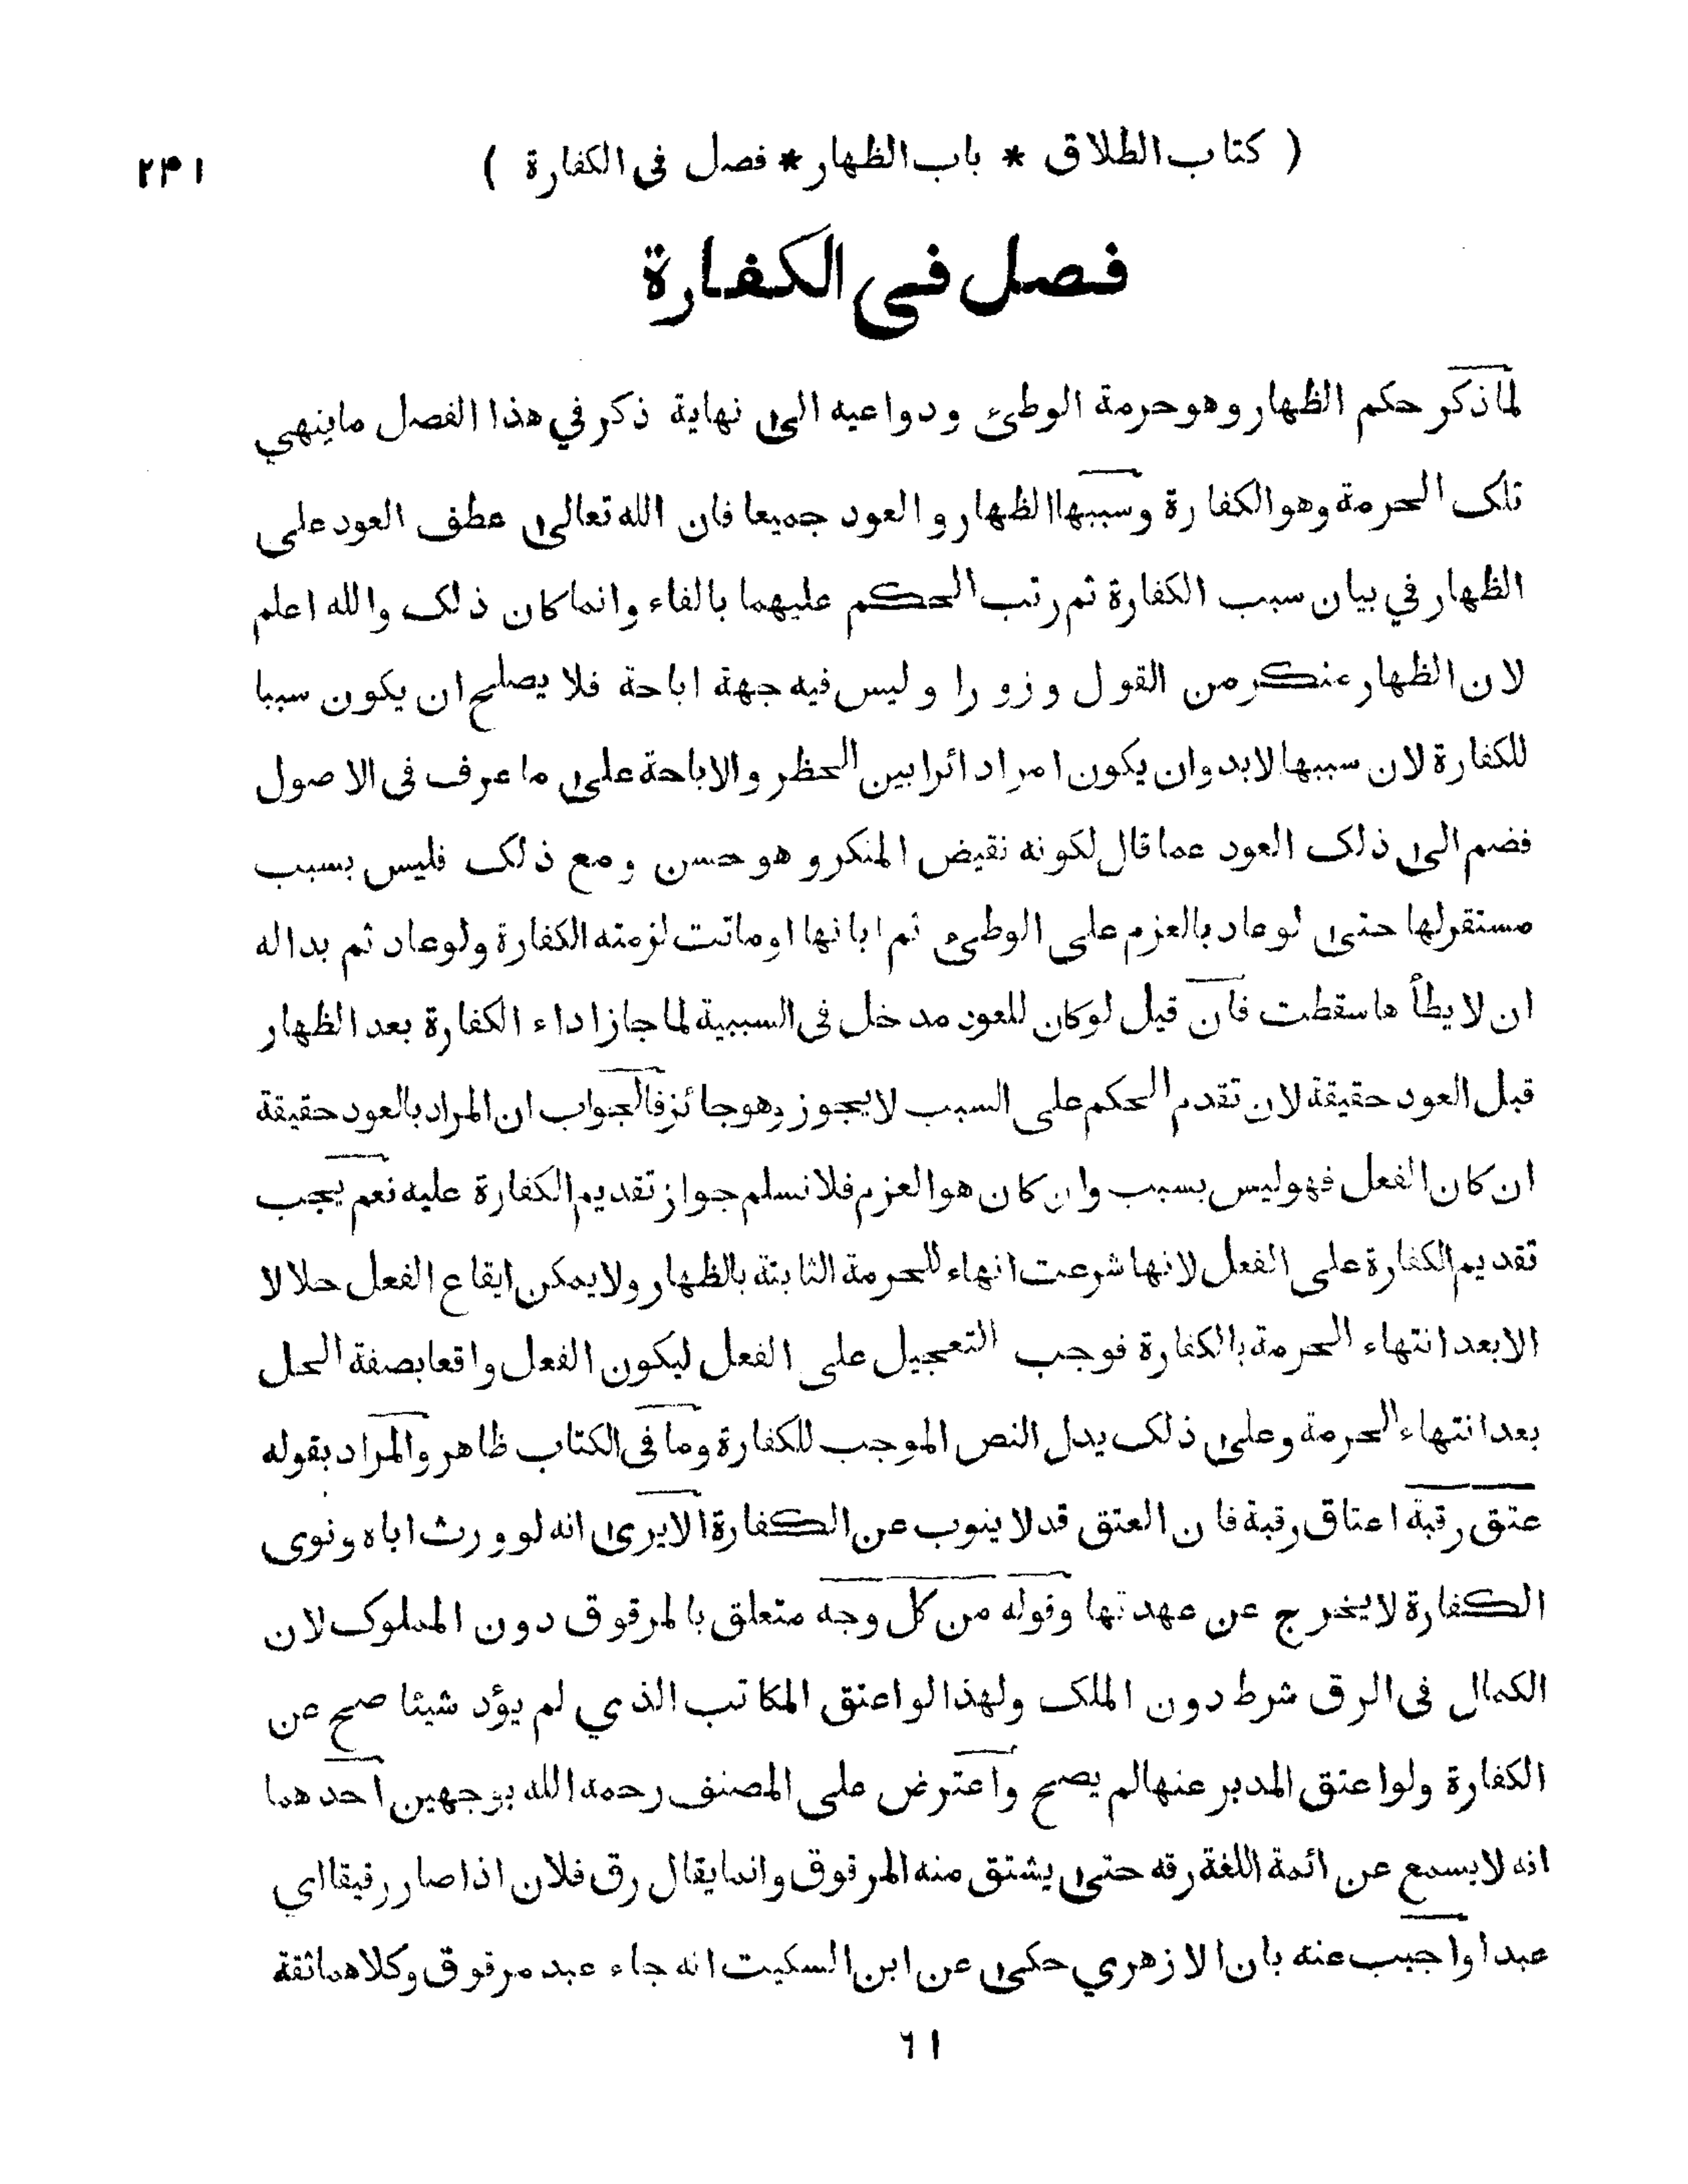 ( كتاب الطلاق * باب الظهار * فصل فى الكفارة ) ٢٤١
فصل فى الكفارة
لما ذكر حكم الظهار وهو حرمة الوطئ ودواعيه الى نهاية ذكر في هذا الفصل ما ينهي
تلك الحرمة وهو الكفارة وسببها الظهار والعود جميعا فان الله تعالى عطف العود على
الظهار في بيان سبب الكفارة ثم رتب الحكم عليهما بالفاء وانما كان ذلك والله اعلم
لان الظهار منكر من القول وزورا وليس فيه جهة اباحة فلا يصلح ان يكون سببا
للكفارة لان سببها لابد وان يكون امرا دائرا بين الحظر والاباحة على ما عرف فى الاصول
فضم الى ذلك العود عما قال لكونه نقيض المنكر وهو حسن ومع ذلك فليس بسبب
مستقر لها حتى لو عاد بالعزم على الوطئ ثم ابانها او ماتت لزمته الكفارة ولو عاد ثم بدا له
ان لا يطأ ها سقطت فان قيل لو كان للعود مدخل فى السببية لما جاز اداء الكفارة بعد الظهار
قبل العود حقيقة لان تقدم الحكم على السبب لا يجوز وهو جائز فالجواب ان المراد بالعود حقيقة
ان كان الفعل فهو ليس بسبب وان كان هو العزم فلا نسلم جواز تقديم الكفارة عليه نعم يجب
تقديم الكفارة على الفعل لانها شرعت انهاء للحرمة الثابتة بالظهار ولا يمكن ايقاع الفعل حلالا
الا بعد انتهاء الحرمة بالكفارة فوجب التعجيل على الفعل ليكون الفعل واقعا بصفة الحل
بعد انتهاء الحرمة وعلى ذلك يدل النص الموجب للكفارة وما فى الكتاب ظاهر والمراد بقوله
عتق رقبة اعتاق رقبة فان العتق قد لا ينوب عن الكفارة الا يرى انه لو ورث اباه ونوى
الكفارة لا يخرج عن عهدتها وقوله من كل وجه متعلق بالمرقوق دون المملوك لان
الكمال فى الرق شرط دون الملك ولهذا لو اعتق المكاتب الذي لم يؤد شيئا صح عن
الكفارة ولو اعتق المدبر عنها لم يصح واعترض على المصنف رحمه الله بوجهين احدهما
انه لا يسمع عن ائمة اللغة رقه حتى يشتق منه المرقوق وانما يقال رق فلان اذا صار رقيقا اي
عبدا واجيب عنه بان الازهري حكى عن ابن السكيت انه جاء عبد مرقوق وكلاهما ثقة
٦١